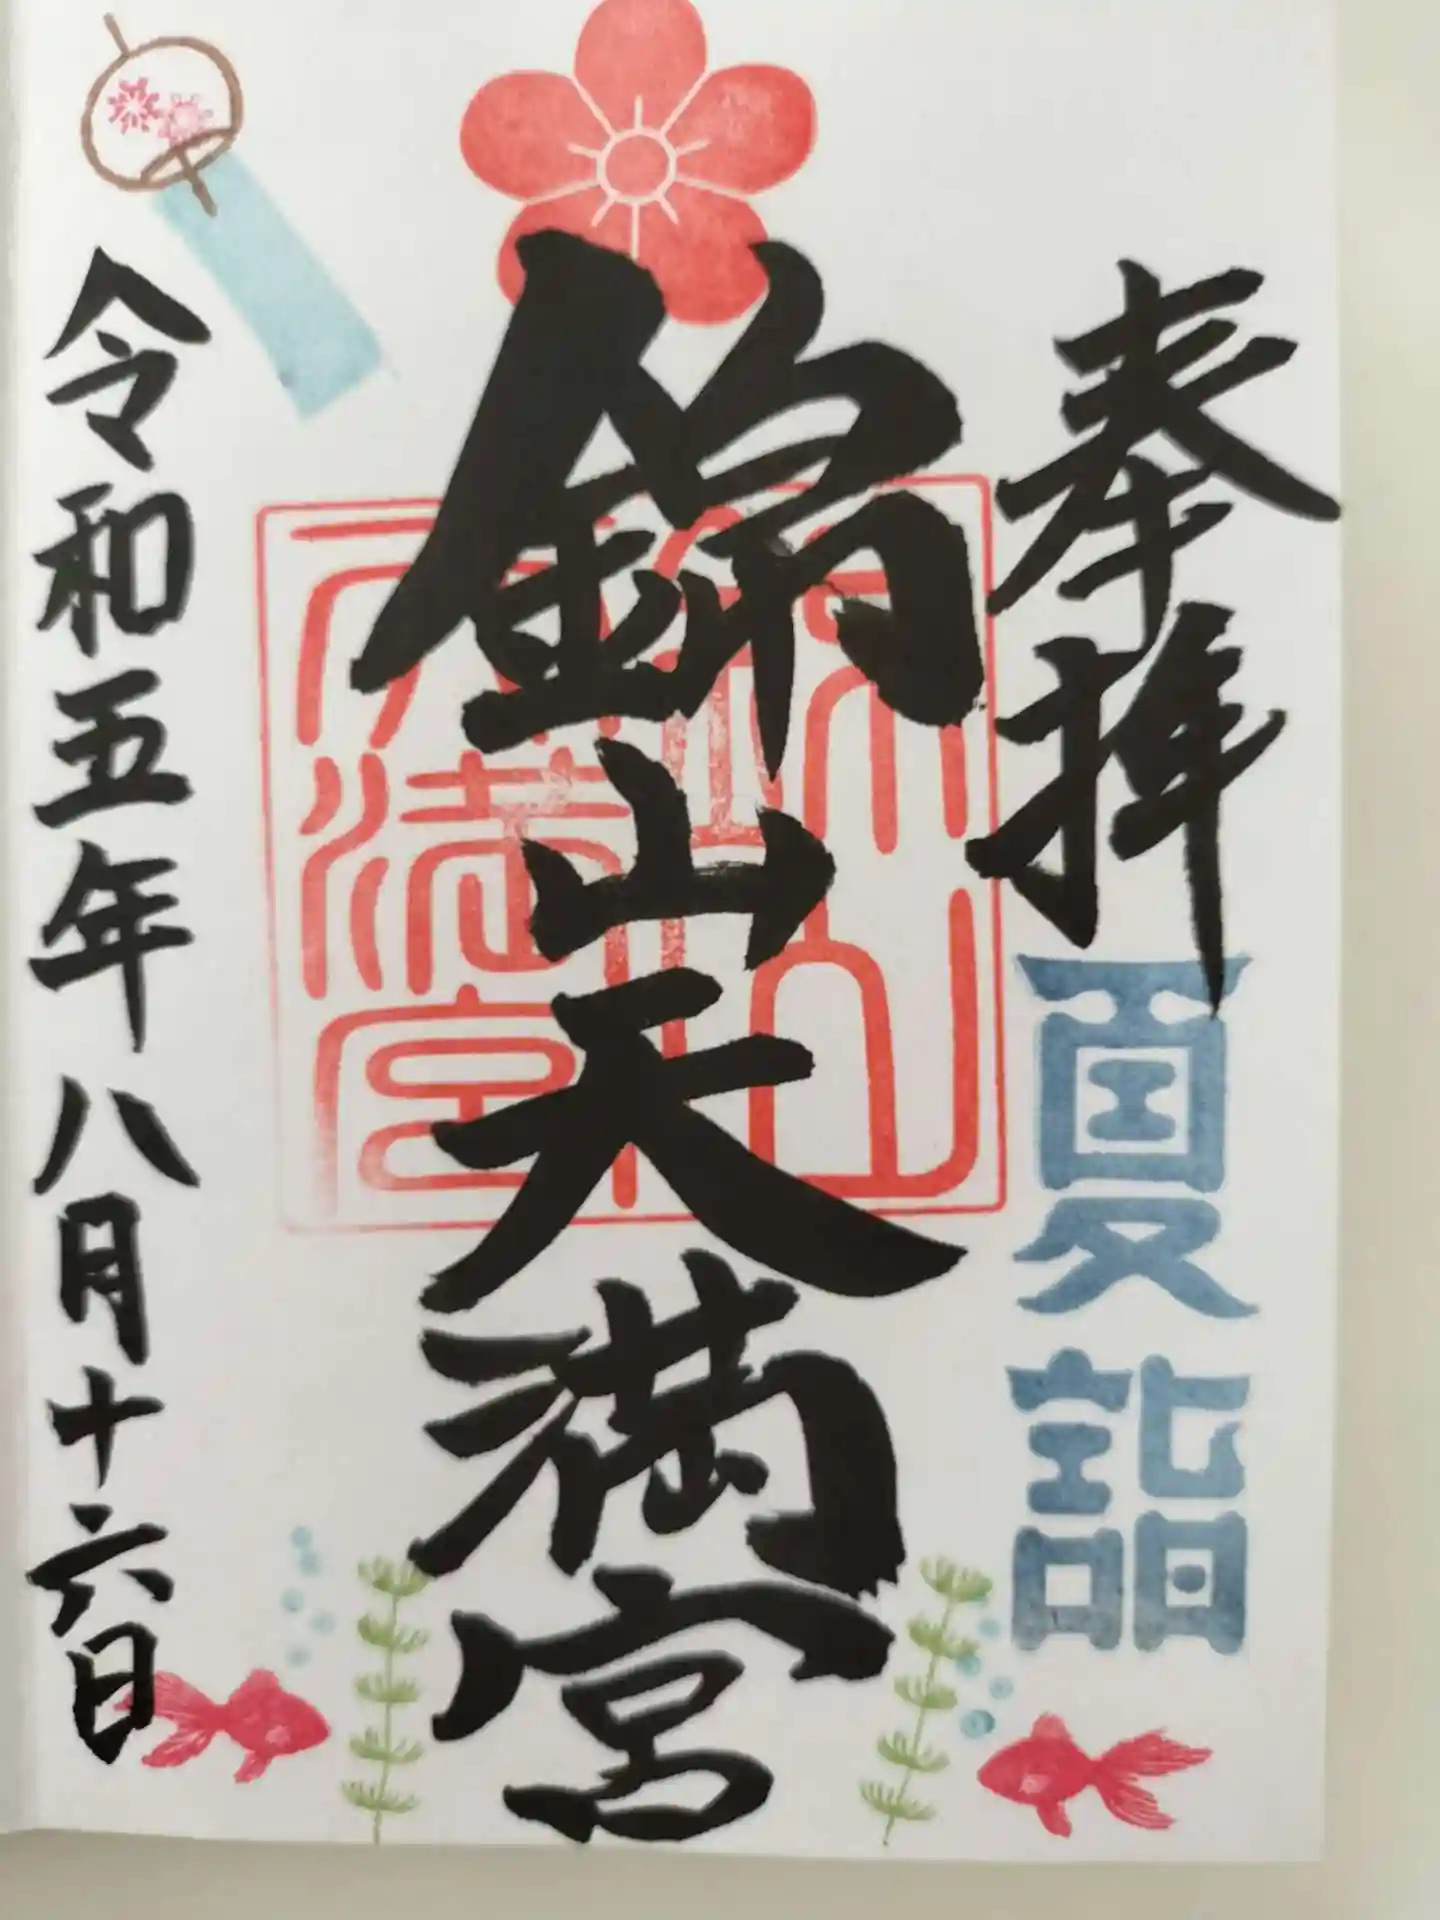 奉拝
夏詣
錦山天満宮
錦山天満宮
令和五年八月十六日